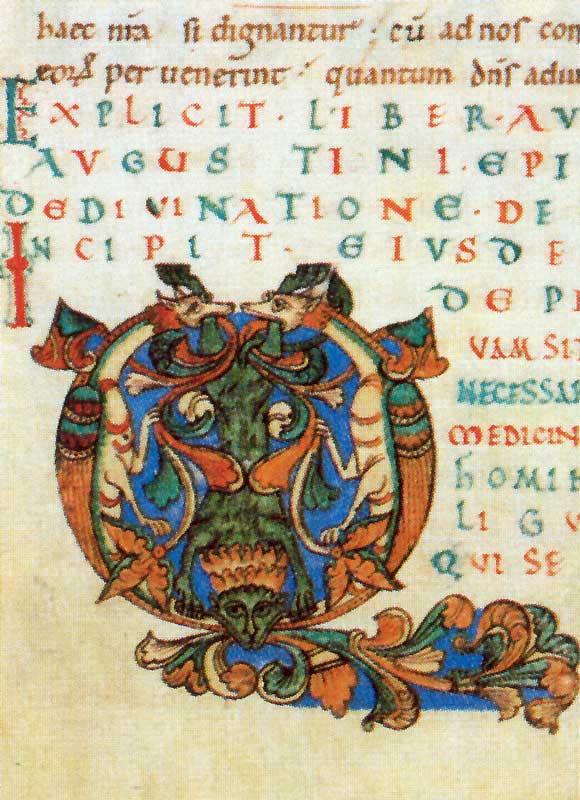 haec nr̅a si dignantur· cu̅ ad nos con
eorꝝ per venerint· quantum dn̅s adiu
EXPLICIT·LIBER·AV
AVGUSTINI·EPI
DEDIVINATIONE·DE
INCIPIT·EIVSDE
DE PE
Q
VAM SIT
NECESSAR
MEDICIN
hOMIN
LIGU
QUI SE